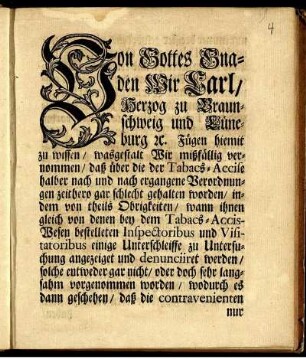 4
Von Gottes Gna-
den Wir Carl/
Herzog zu Braun-
schweig und Lüne-
burg ꝛc. Fügen hiemit
zu wissen/ wasgestalt Wir mißfällig ver-
nommen/ daß über die der Tabacs-Accise
halber nach und nach ergangene Verordnun-
gen zeithero gar schlecht gehalten worden/ in-
dem von theils Obrigkeiten/ wann ihnen
gleich von denen bey dem Tabacs-Accis-
Wesen bestelleten Inspectoribus und Visi-
tatoribus einige Unterschleiffe zu Untersu-
chung angezeiget und denunciiret werden/
solche entweder gar nicht/ oder doch sehr lang-
sahm vorgenommen worden/ wodurch es
dann geschehen/ daß die contravenienten
nur